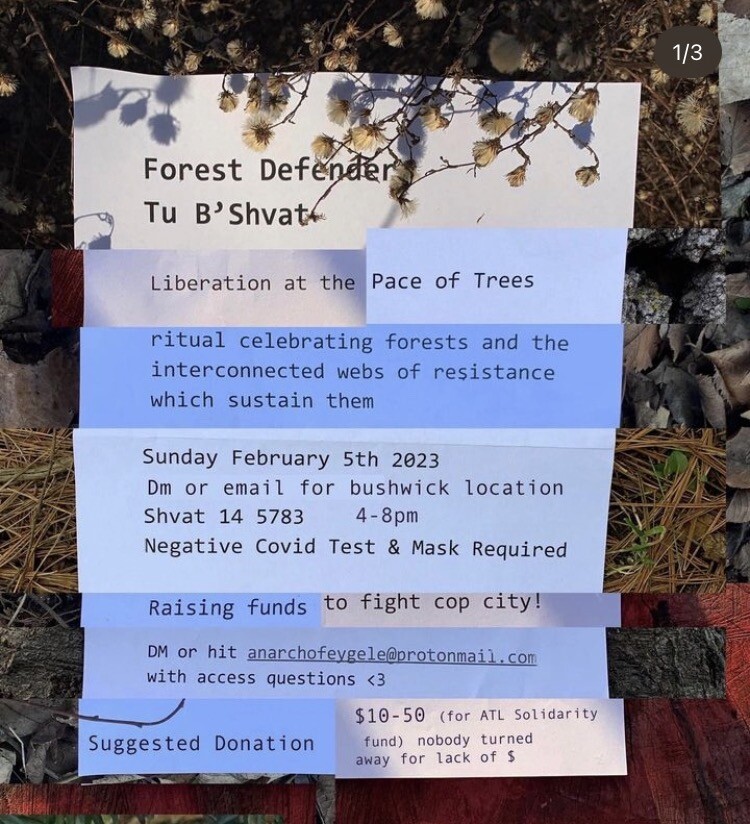 1/3
Forest Defender
Tu B'Shvat
Liberation at the Pace of Trees
ritual celebrating forests and the
interconnected webs of resistance
which sustain them
Sunday February 5th 2023
Dm or email for bushwick location
Shvat 14 5783 4-8pm
Negative Covid Test & Mask Required
Raising funds to fight cop city!
DM or hit anarchofeygele@protonmail.com
with access questions <3
Suggested Donation
$10-50 (for ATL Solidarity
fund) nobody turned
away for lack of $